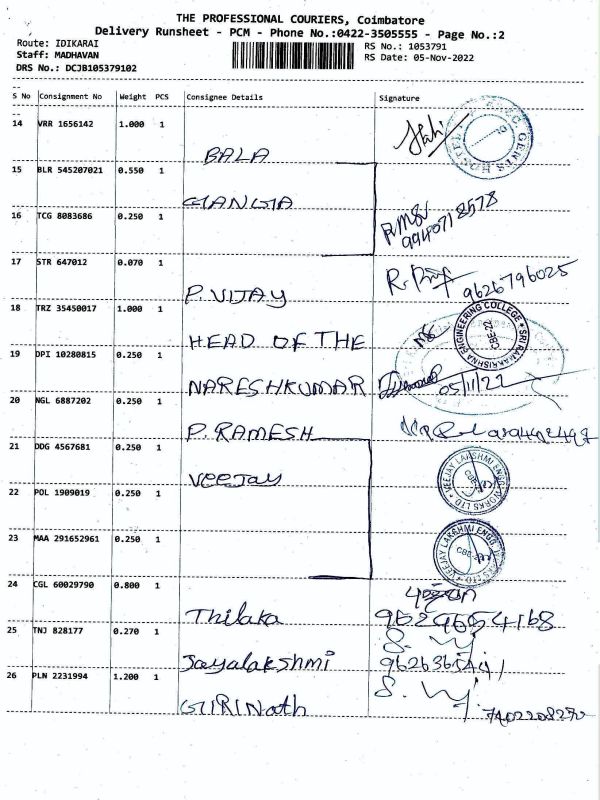 THE PROFESSIONAL COURIERS, Coimbatore
Delivery Runsheet - PCM - Phone No.:0422-3505555 - Page No.:2
Route: IDIKARAI RS No.: 1053791
Staff: MADHAVAN RS Date: 05-Nov-2022
DRS No.: DCJB105379102
S No Consignment No Weight PCS Consignee Details Signature
14 VRR 1656142 1.000 1
BALA
15 BLR 545207021 0.550 1
GANGA
16 TCG 8083686 0.250 1
9940718578
17 STR 647012 0.070 1
P. VIJAY 9626796025
18 TRZ 35450017 1.000 1
HEAD OF THE
SRI RAMAKRISHNA ENGINEERING COLLEGE
CBE-22
19 DPI 10280815 0.250 1
NARESHKUMAR 05/11/22
20 NGL 6887202 0.250 1
P. RAMESH
21 DDG 4567681 0.250 1
Veejay
VEEJAY LAKSHMI ENGG WORKS LTD
22 POL 1909019 0.250 1
23 MAA 291652961 0.250 1
VEEJAY LAKSHMI ENGG WORKS LTD
24 CGL 60029790 0.800 1
Thilaka
25 TNJ 828177 0.270 1
Jayalakshmi
26 PLN 2231994 1.200 1
GIRINath 7402208270